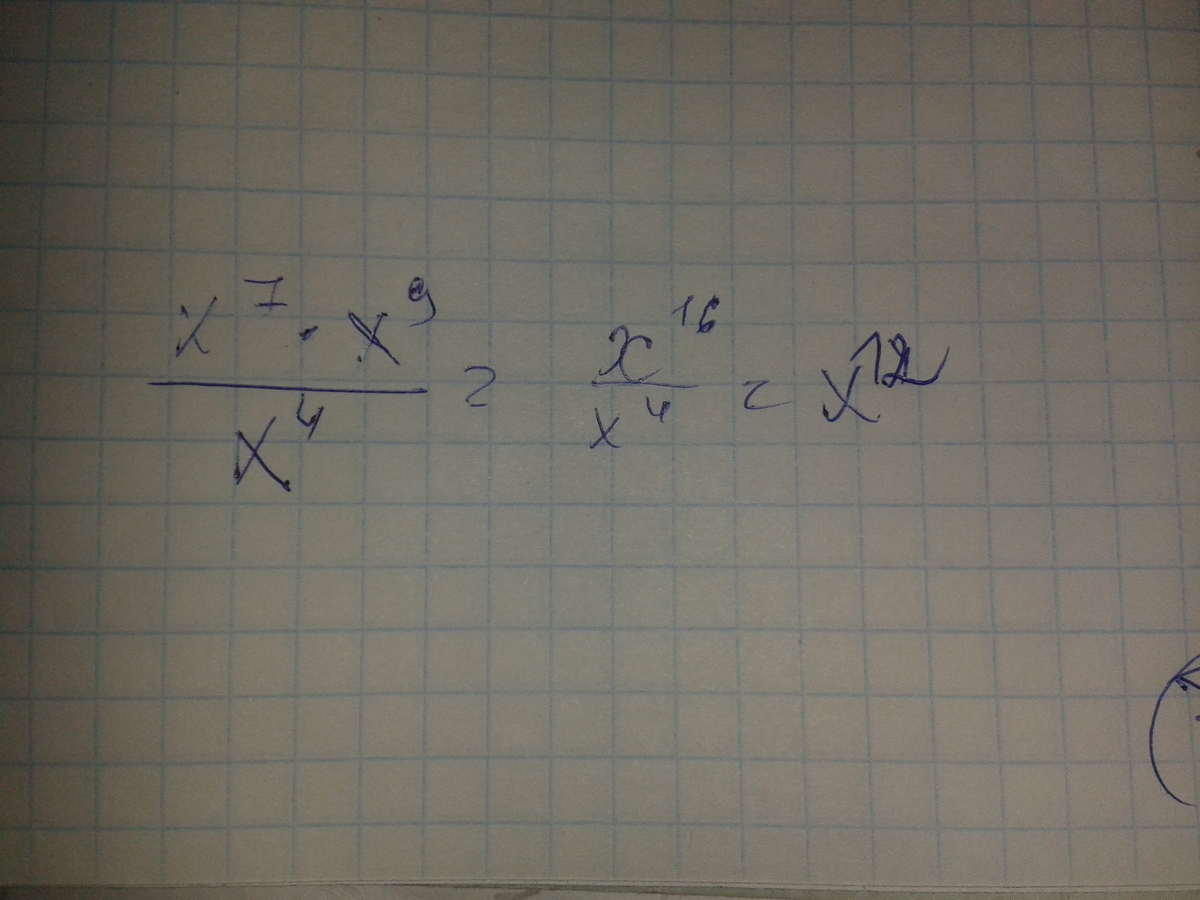 x⁷ · x⁹ / x⁴ = x¹⁶ / x⁴ = x¹²